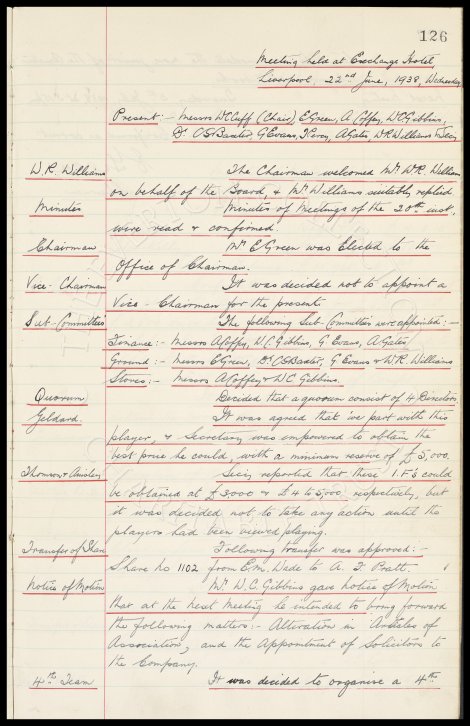 126
Meeting held at Exchange Hotel,
Liverpool, 22nd June, 1938, Wednesday
Present:- Messrs W.C. Cuff (Chair) E Green, A Coffey, W.C. Gibbins,
Dr. C.S. Baxter, G Evans, A Gates, W R Williams
W.R. Williams The Chairman welcomed Mr. W.R. Williams
on behalf of the Board, & Mr. Williams suitably replied
Minutes Minutes of Meetings of the 20th inst.
were read & confirmed.
Chairman Mr. E Green was Elected to the
Office of Chairman.
Vice-Chairman It was decided not to appoint a
Vice-Chairman for the present.
Sub-Committees The following Sub-Committees were appointed:-
Finance:- Messrs A Coffey, W.C. Gibbins, G Evans, A Gates
Ground:- Messrs E Green, Dr. C S Baxter, G Evans & W.R. Williams
Stores:- Messrs A Coffey & W C Gibbins.
Quorum Decided that a quorum consist of 4 Directors.
Geldard. It was agreed that we part with this
player, & Secretary was empowered to obtain the
best price he could, with a minimum reserve of £5,000.
Thomson & Ainsley Secy. reported that these I.F.s could
be obtained at £3000 & £4 to 5,000 respectively, but
it was decided not to take any action until the
players had been viewed playing.
Transfer of Share Following transfer was approved:-
Share No 1102 from E.M. Wade to A. J. Pratt.
Notice of Motion Mr. W.C. Gibbins gave notice of Motion
that at the next Meeting he intended to bring forward
the following matters:- Alteration in Articles of
Association, and the Appointment of Solicitors to
the Company.
4th Team It was decided to organise a 4th